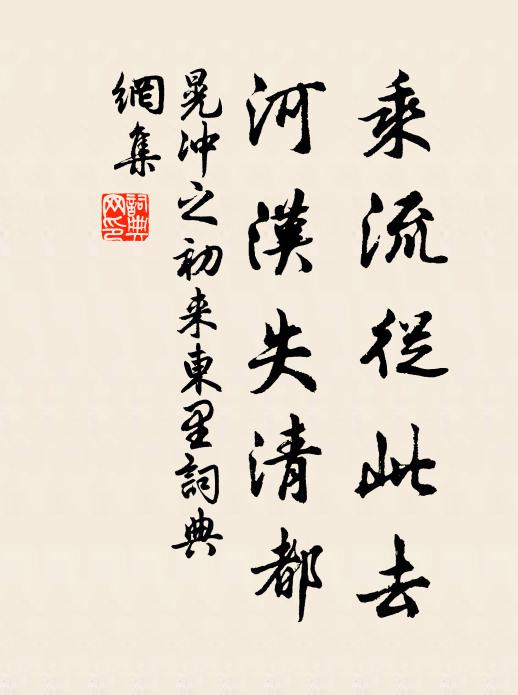 乘流從此去
河漢失清都
晁沖之初来東里詞典
網集
詞典網印